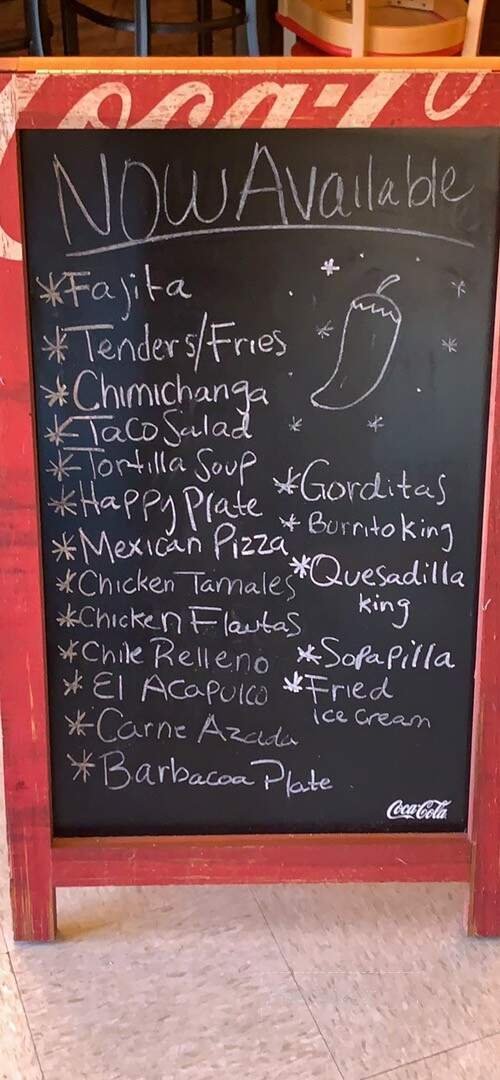 Coca-Co
NOW Available
*Fajita
*Tenders/Fries
*Chimichanga
*Taco Salad
*Tortilla Soup
*Happy Plate
*Mexican Pizza
*Chicken Tamales
*Chicken Flautas
*Chile Relleno
*El Acapulco
*Carne Azada
*Barbacoa Plate
*Gorditas
*Burrito king
*Quesadilla
king
*Sopapilla
*Fried
ice cream
Coca-Cola